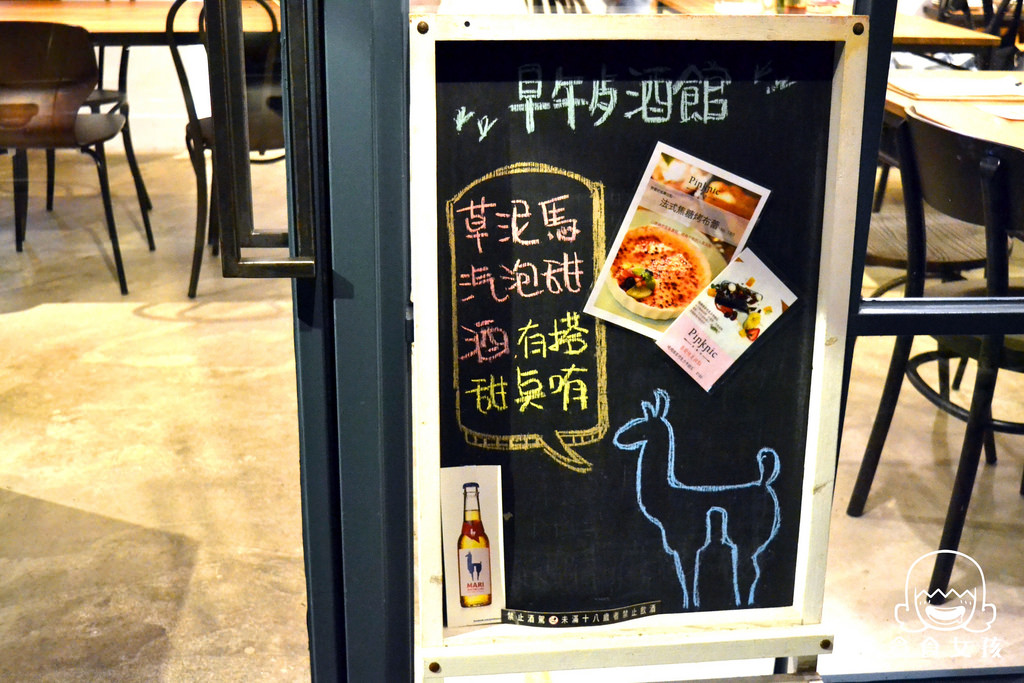 早午歺酒館
草泥馬
汽泡甜
酒有搭
甜點唷
Pinknic
法式焦糖烤布蕾
Pinknic
MARI
禁止酒駕 未滿十八歲者禁止飲酒
食女孩